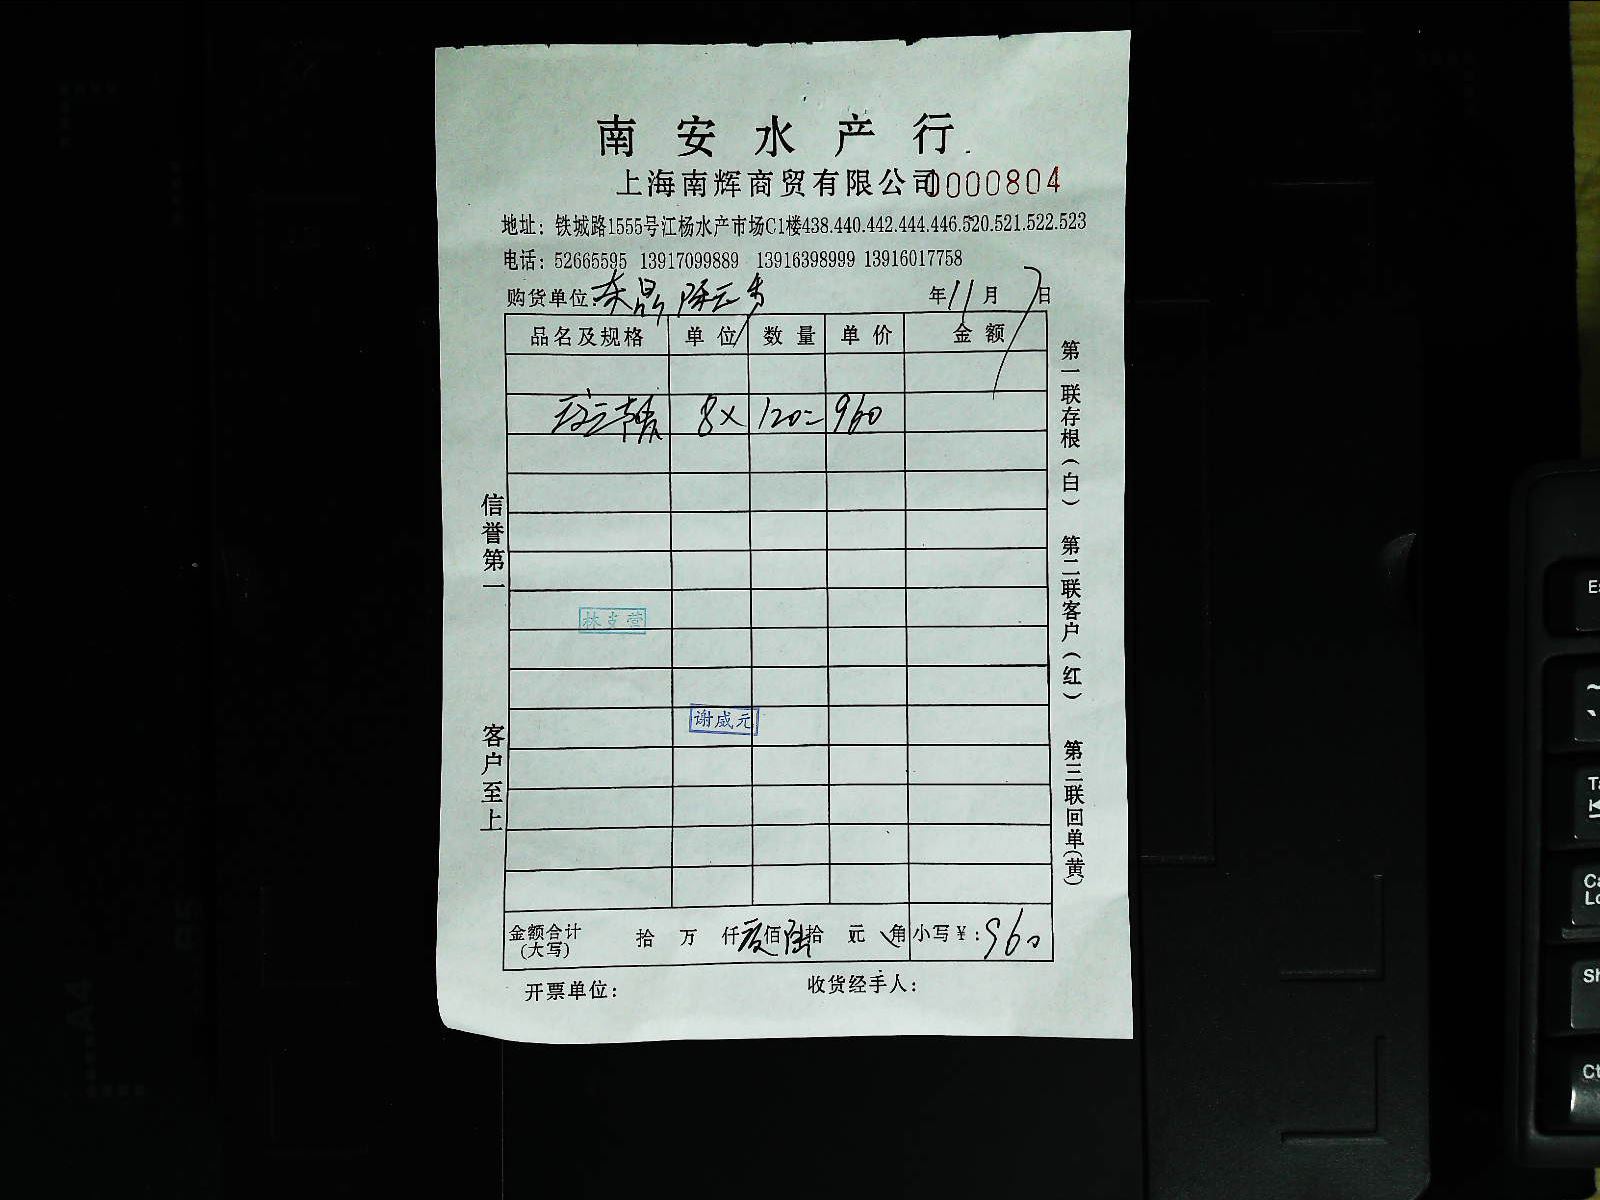 南安水产行
上海南辉商贸有限公司 0000804
地址：铁城路1555号江杨水产市场C1楼438.440.442.444.446.520.521.522.523
电话：52665595 13917099889 13916398999 13916017758
购货单位： 年11月7日
品名及规格 单位 数量 单价 金额
8× 120= 960
第一联存根（白） 第二联客户（红） 第三联回单（黄）
信誉第一 客户至上
林支营
谢咸元
金额合计（大写） 拾 万 仟 佰陆拾 元 角 小写￥：960
开票单位： 收货经手人：
Es
~
`
Ta
Ca
Lo
Sh
Ct